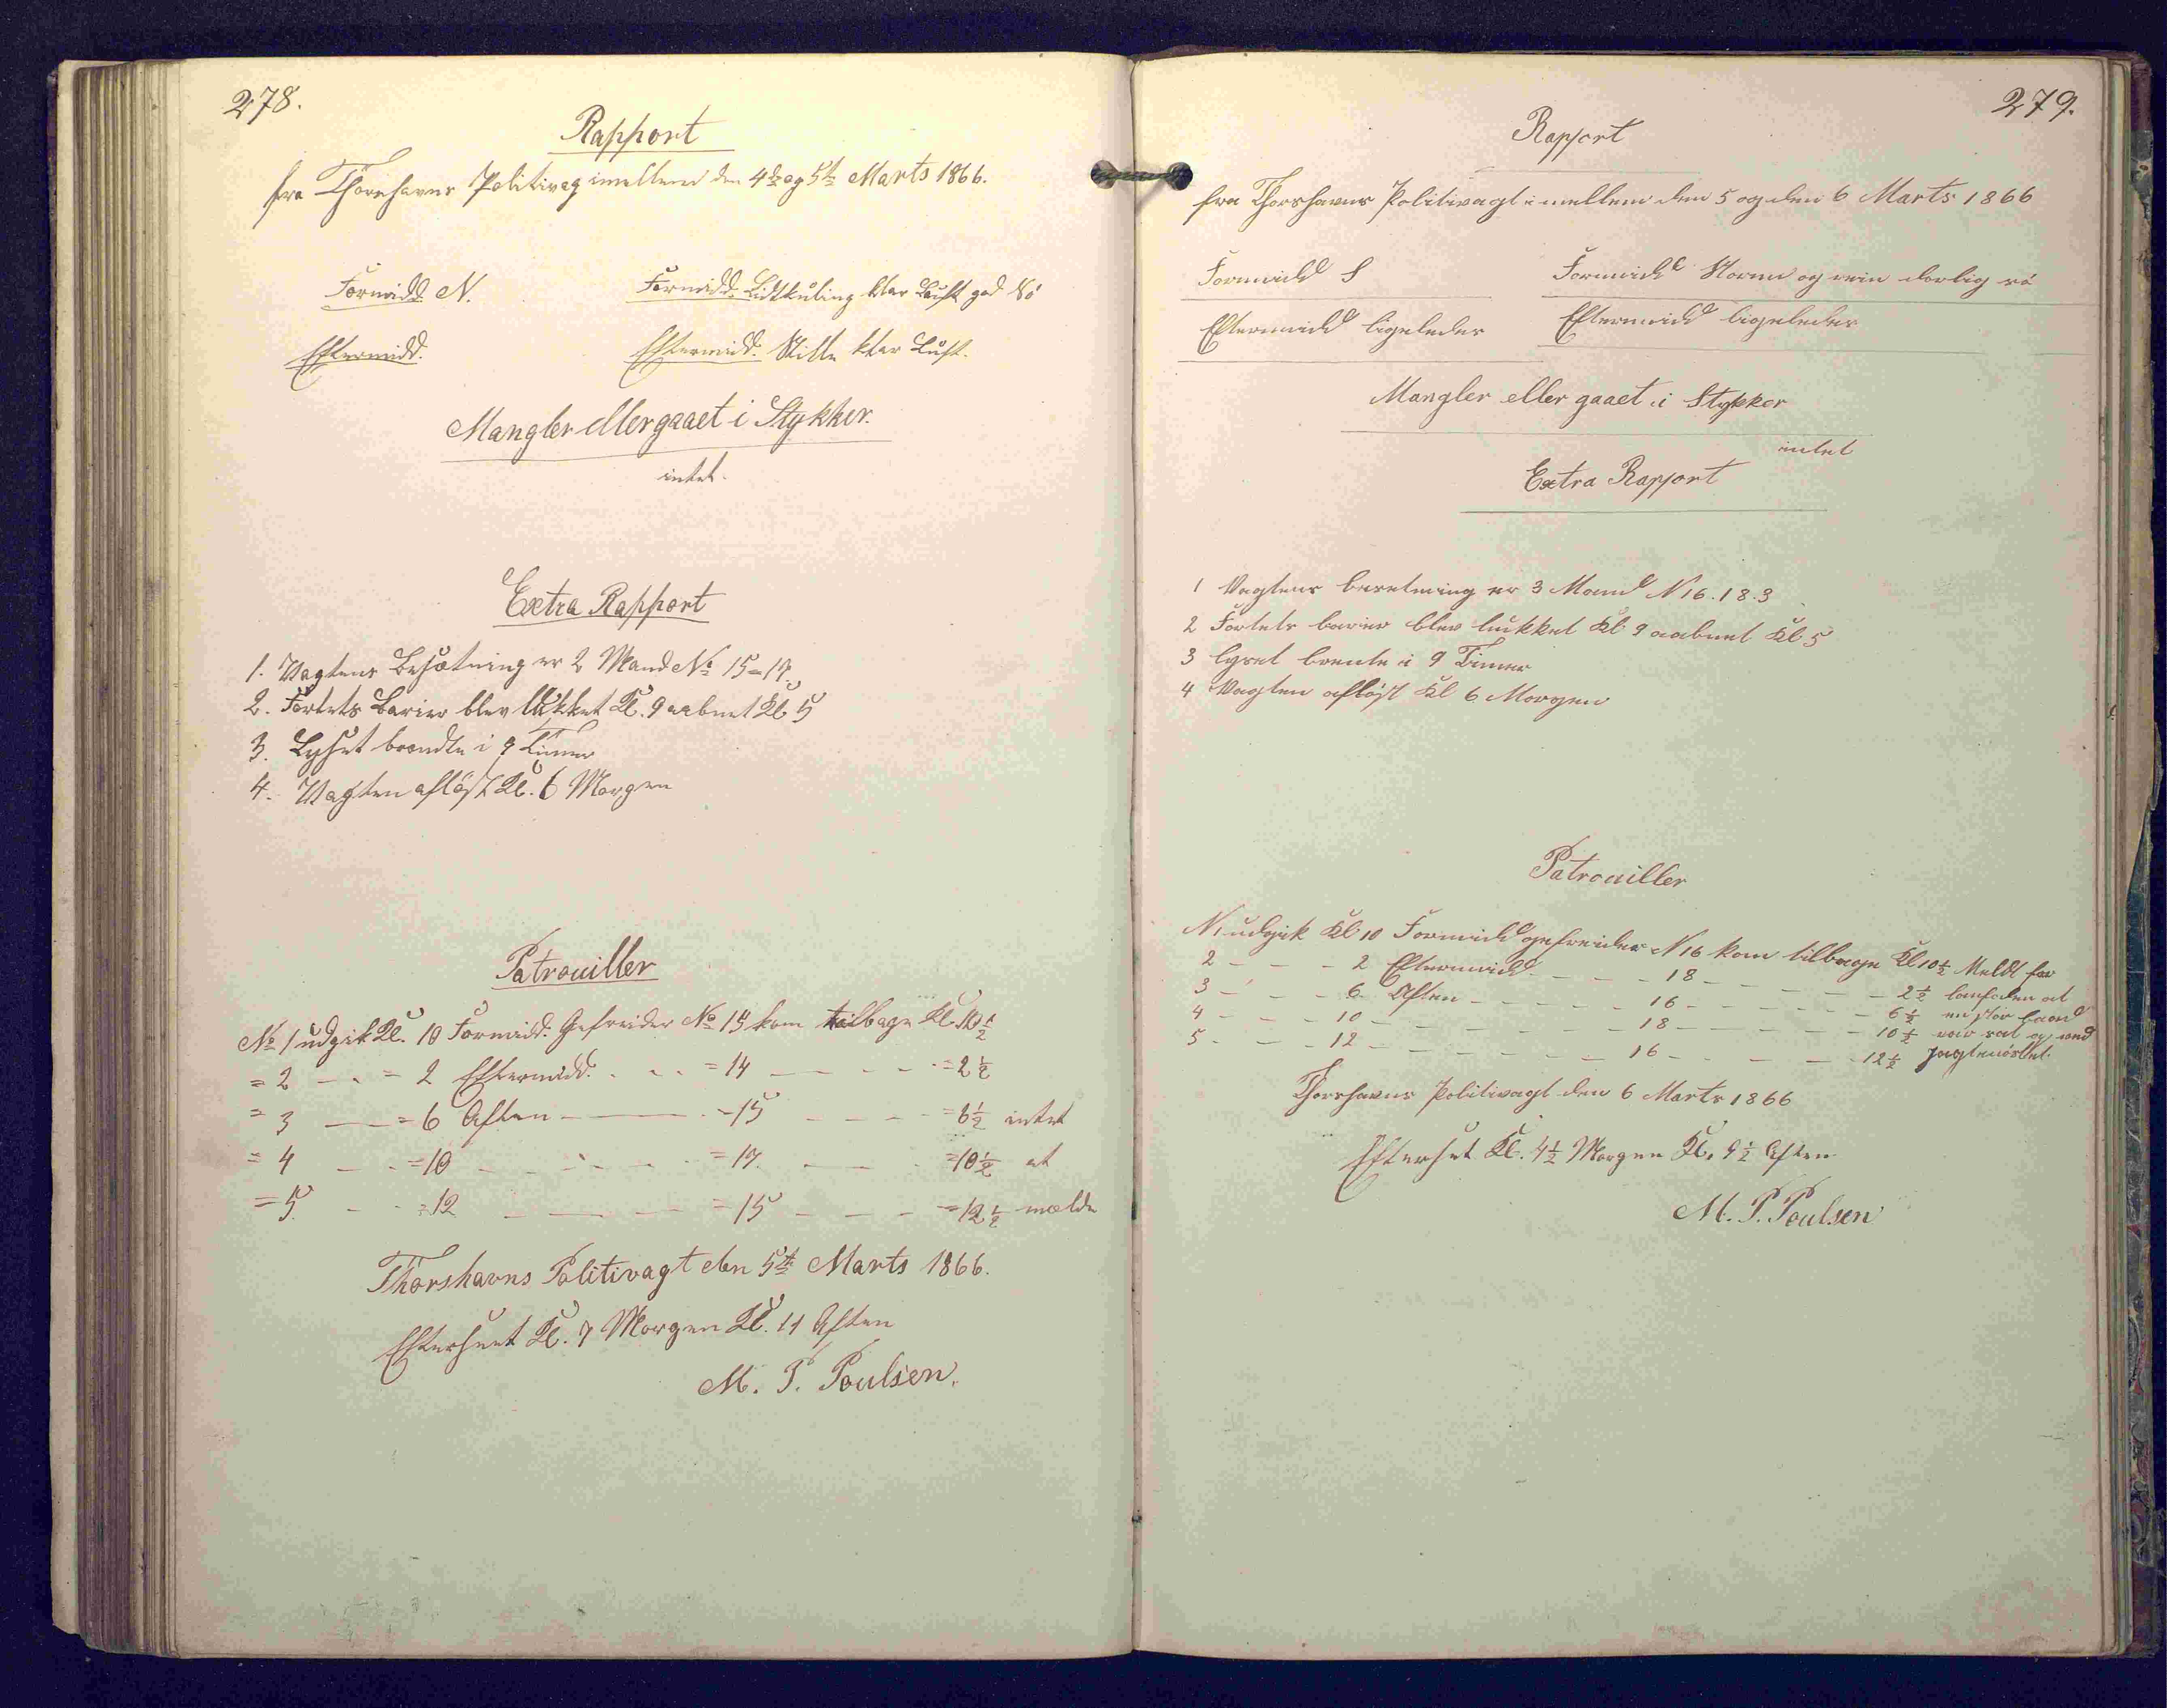 278.
Rapport
fra Thorshavns Politivag imellem den 4de og 5te Marts 1866.
Formidd. N. Formidd. Lidtkuling klar Luft god Sö
Eftermidd. Eftermidd. Stille klar Luft.
Mangler eller gaaet i Stykker.
intet.
Extra Rapport
1. Vagtens Besætning er 2 Mand No 15=19.
2. Fortets Barier blev lukket Kl. 9 aabnet Kl 5
3. Lyset brændte i 9 Timer
4. Vagten aflöst Kl. 6 Morgen
Patrouiller
No 1 udgik Kl. 10 Formidd. Gefreider No 15 kom tilbage Kl. 10 1/2
= 2 - . = 2 Eftermidd. . . . = 14 - - . - . = 2 1/2
= 3 - - = 6 Aften - - . - 15 - - - = 6 1/2 intet
= 4 - . = 10 - - . - . = 19. - - . = 10 1/2 at
= 5. - - = 12 - - - - = 15 - - - = 12 1/2 mælde
Thorshavns Politivagt den 5te Marts 1866.
Efterseet Kl. 7 Morgen Kl. 11 Aften
M. P. Poulsen.
279.
Rapport
fra Thorshavns Politivagt imellem den 5 og den 6 Marts 1866
Formidd S Formidd Storm og rein dorlig sö
Eftermidd ligeledes Eftermidd ligeledes
Mangler eller gaaet i Stykker
intet
Extra Rapport
1 Vagtens besetning er 3 Mand N 16. 18. 3
2 Fortets barier blev lukket Kl. 9 aabnet Kl 5
3 lyset brente i 9 Timer
4 Vagten aflöst Kl 6 Morgen
Patrouiller
N 1 udgik Kl 10 Formidd gefreider N 16 kom tilbage Kl 10 1/2 Meldt for
2 - - - 2 Eftermidd - - - 18 - - - - 2 1/2 at
3 - - - 6 Aften - - - - 16 - - - - 6 1/2 en stor
4 - - - 10 - - - - - 18 - - - - 10 1/2 og ved
5 - - - 12 - - - - - 16 - - - - 12 1/2
Thorshavns Politivagt den 6 Marts 1866
Efterset Kl. 4 1/2 Morgen Kl. 9 1/2 Aften
M. P. Poulsen